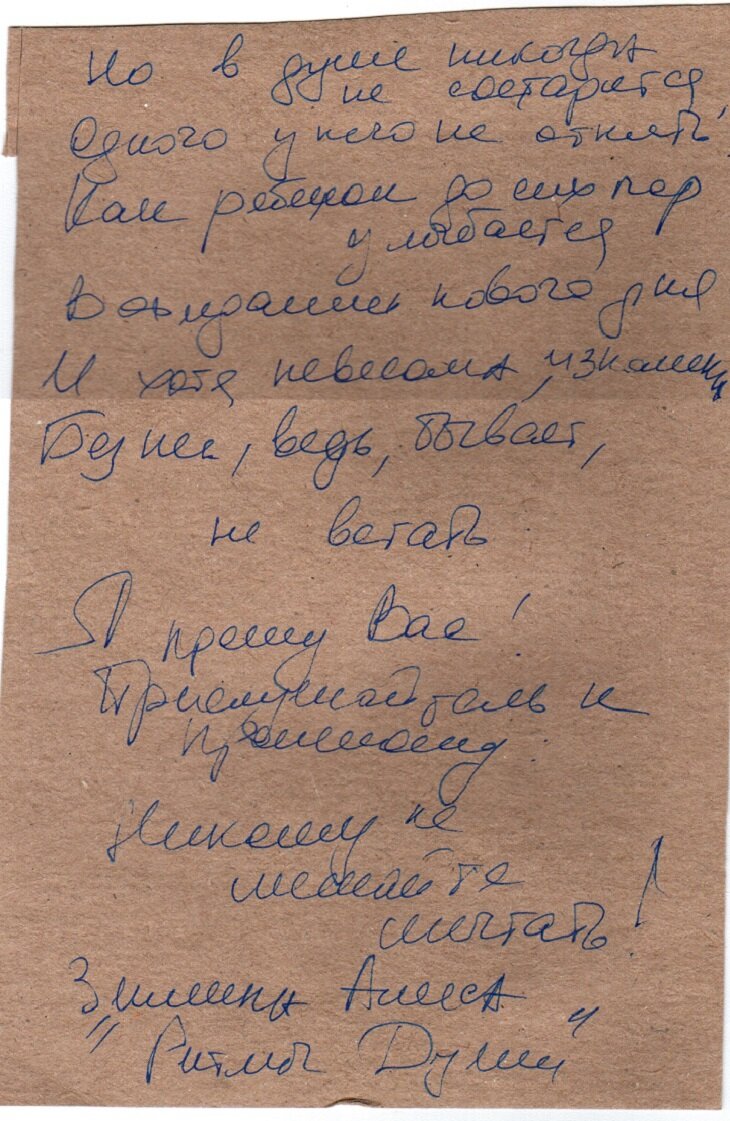 Но в душе никогда
не состарится,
Одного у него не отнять!
Как ребенок до сих пор
улыбается
В ожидании нового дня
И хотя невесома, изнеженна
Без нее, ведь, бывает,
не встать
Я прошу Вас!
Прислушайтесь к
прошлому.
Никому не
мешайте
мечтать!
Зимина Алиса
"Ритмы Души"